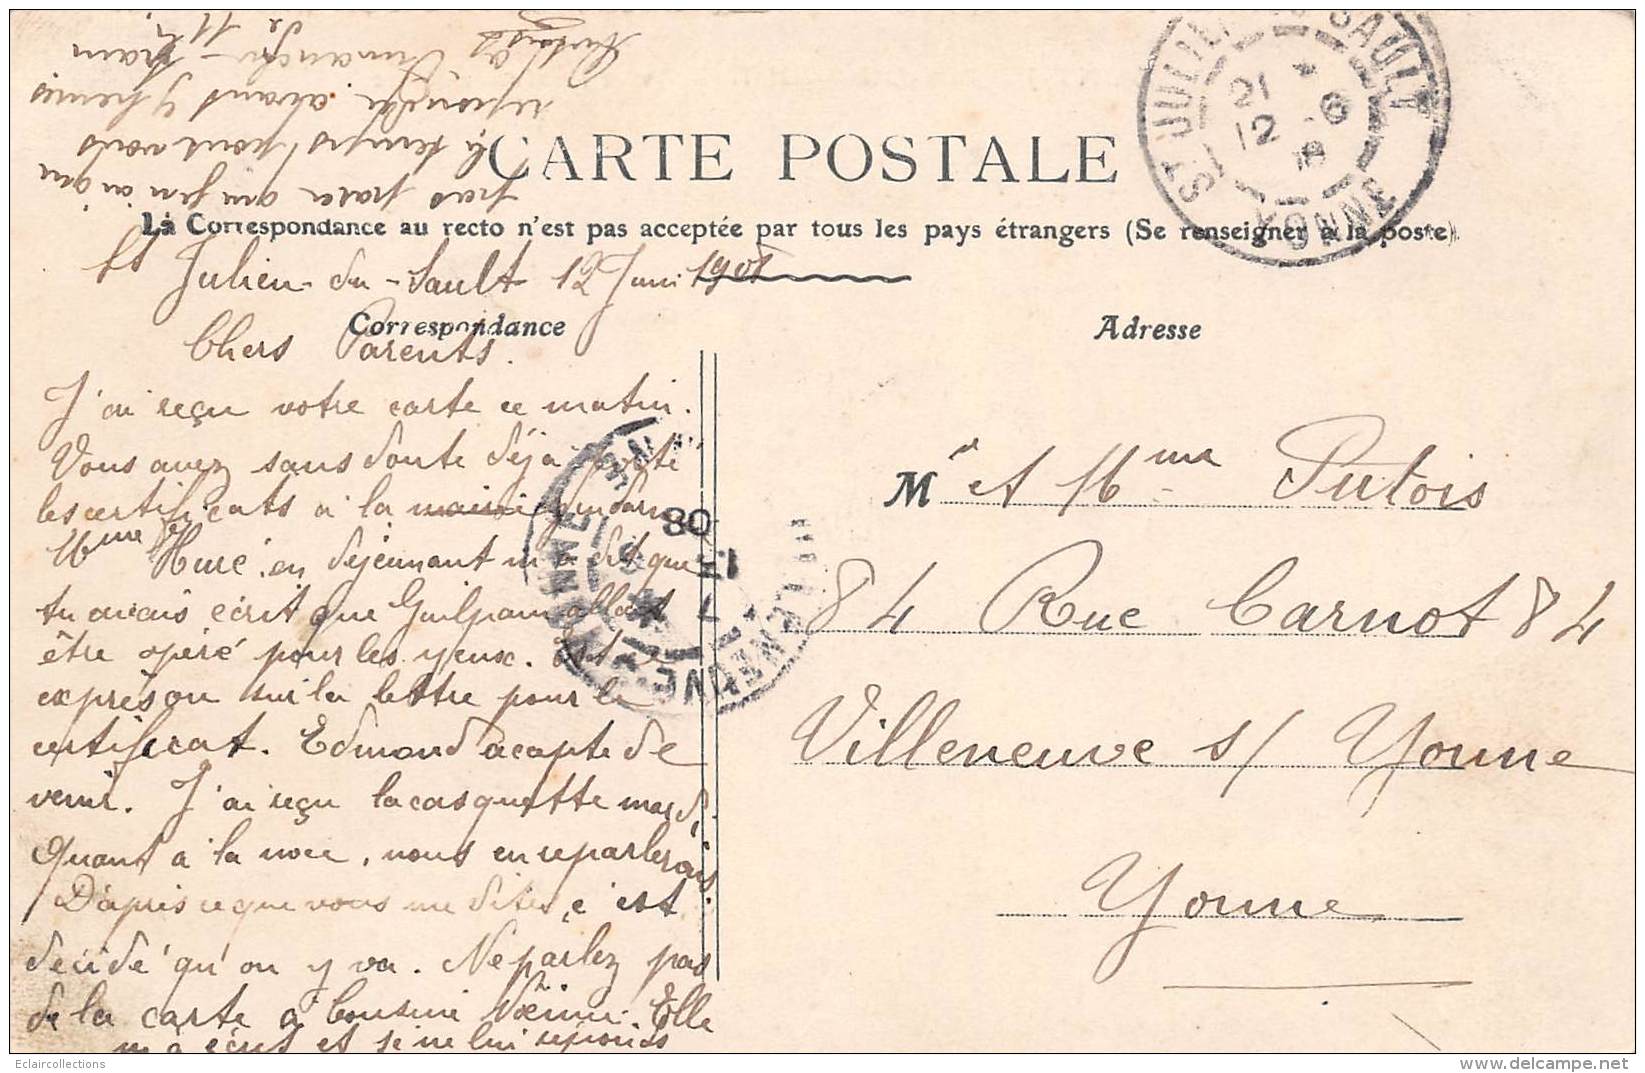 CARTE POSTALE
La Correspondance au recto n'est pas acceptée par tous les pays étrangers (Se renseigner à la poste)
ST JULIEN DU SAULT
YONNE
21 * 12 - 6 08
St Julien-du-Sault 12 Juin 1908
Correspondance
Chers Parents.
J'ai reçu votre carte ce matin.
Vous avez sans doute déjà porté
les certificats à la mairie gendarm
Mme Huré, en déjeunant m'a dit que
tu avais écrit que Guilpain allait
être opéré pour les yeux. Est-ce
exprès ou sur la lettre pour le
certificat. Edmond acapte de
venir. J'ai reçu la casquette mardi.
Quant à la noce, nous en reparlerons
D'après ce que vous me dites, c'est
décidé qu'on y va. Ne parlez pas
de la carte à Cousine Noémie. Elle
m'a écrit et si je ne lui réponds
pas par ainsi
le temps pour vous
répondre avant
dimanche - train
de 11h
Putois
Adresse
Mr et Mme Putois
84 Rue Carnot 84
Villeneuve s/ Yonne
Yonne
08
Eclaircollections
© delcampe.net